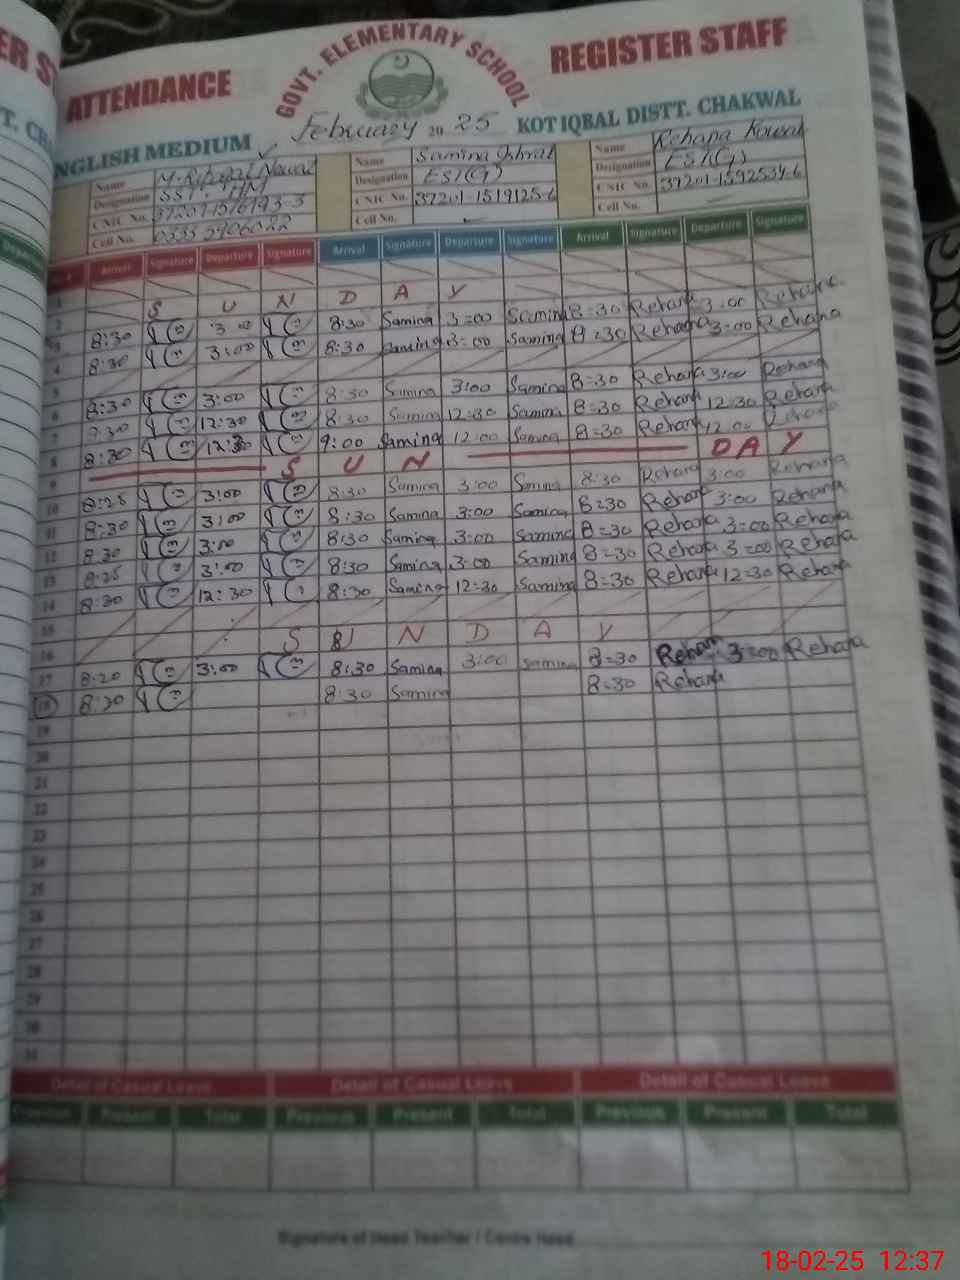 ATTENDANCE GOVT. ELEMENTARY SCHOOL REGISTER STAFF
ENGLISH MEDIUM February 2025 KOT IQBAL DISTT. CHAKWAL
Name Name Samina Name Rehana
Designation SST HM Designation EST(G) Designation EST(G)
CNIC No. CNIC No. 37201-1519125-6 CNIC No. 37201-1592534-6
Cell No. Cell No. Cell No.
Arrival Signature Departure Signature Arrival Signature Departure Signature Arrival Signature Departure Signature
1
2 S U N D A Y
3 8:30 3:00 8:30 Samina 3=00 Samina 8=30 Rehana 3:00 Rehana
4 8:30 3:00 8:30 Samina 3:00 Samina 8=30 Rehana 3:00 Rehana
5
6 8:30 3:00 8:30 Samina 3:00 Samina 8=30 Rehana 3:00 Rehana
7 8:30 12:30 8:30 Samina 12=30 Samina 8=30 Rehana 12=30 Rehana
8 8:30 12:30 9:00 Samina 12:00 Samina 8=30 Rehana 12:00 Rehana
9 S U N D A Y
10 8:25 3:00 8:30 Samina 3:00 Samina 8:30 Rehana 3:00 Rehana
11 8:30 3:00 8:30 Samina 3:00 Samina 8=30 Rehana 3:00 Rehana
12 8:30 3:00 8:30 Samina 3:00 Samina 8=30 Rehana 3=00 Rehana
13 8:25 3:00 8:30 Samina 3:00 Samina 8=30 Rehana 3=00 Rehana
14 8:30 12:30 8:30 Samina 12=30 Samina 8=30 Rehana 12=30 Rehana
15
16 S U N D A Y
17 8:20 3:00 8:30 Samina 3:00 Samina 8=30 Rehana 3=00 Rehana
18 8:20 8:30 Samina 8=30 Rehana
19
20
21
22
23
24
25
26
27
28
29
30
31
Detail of Casual Leave Detail of Casual Leave Detail of Casual Leave
Previous Present Total Previous Present Total Previous Present Total
Signature of Head Teacher / Centre Head
18-02-25 12:37